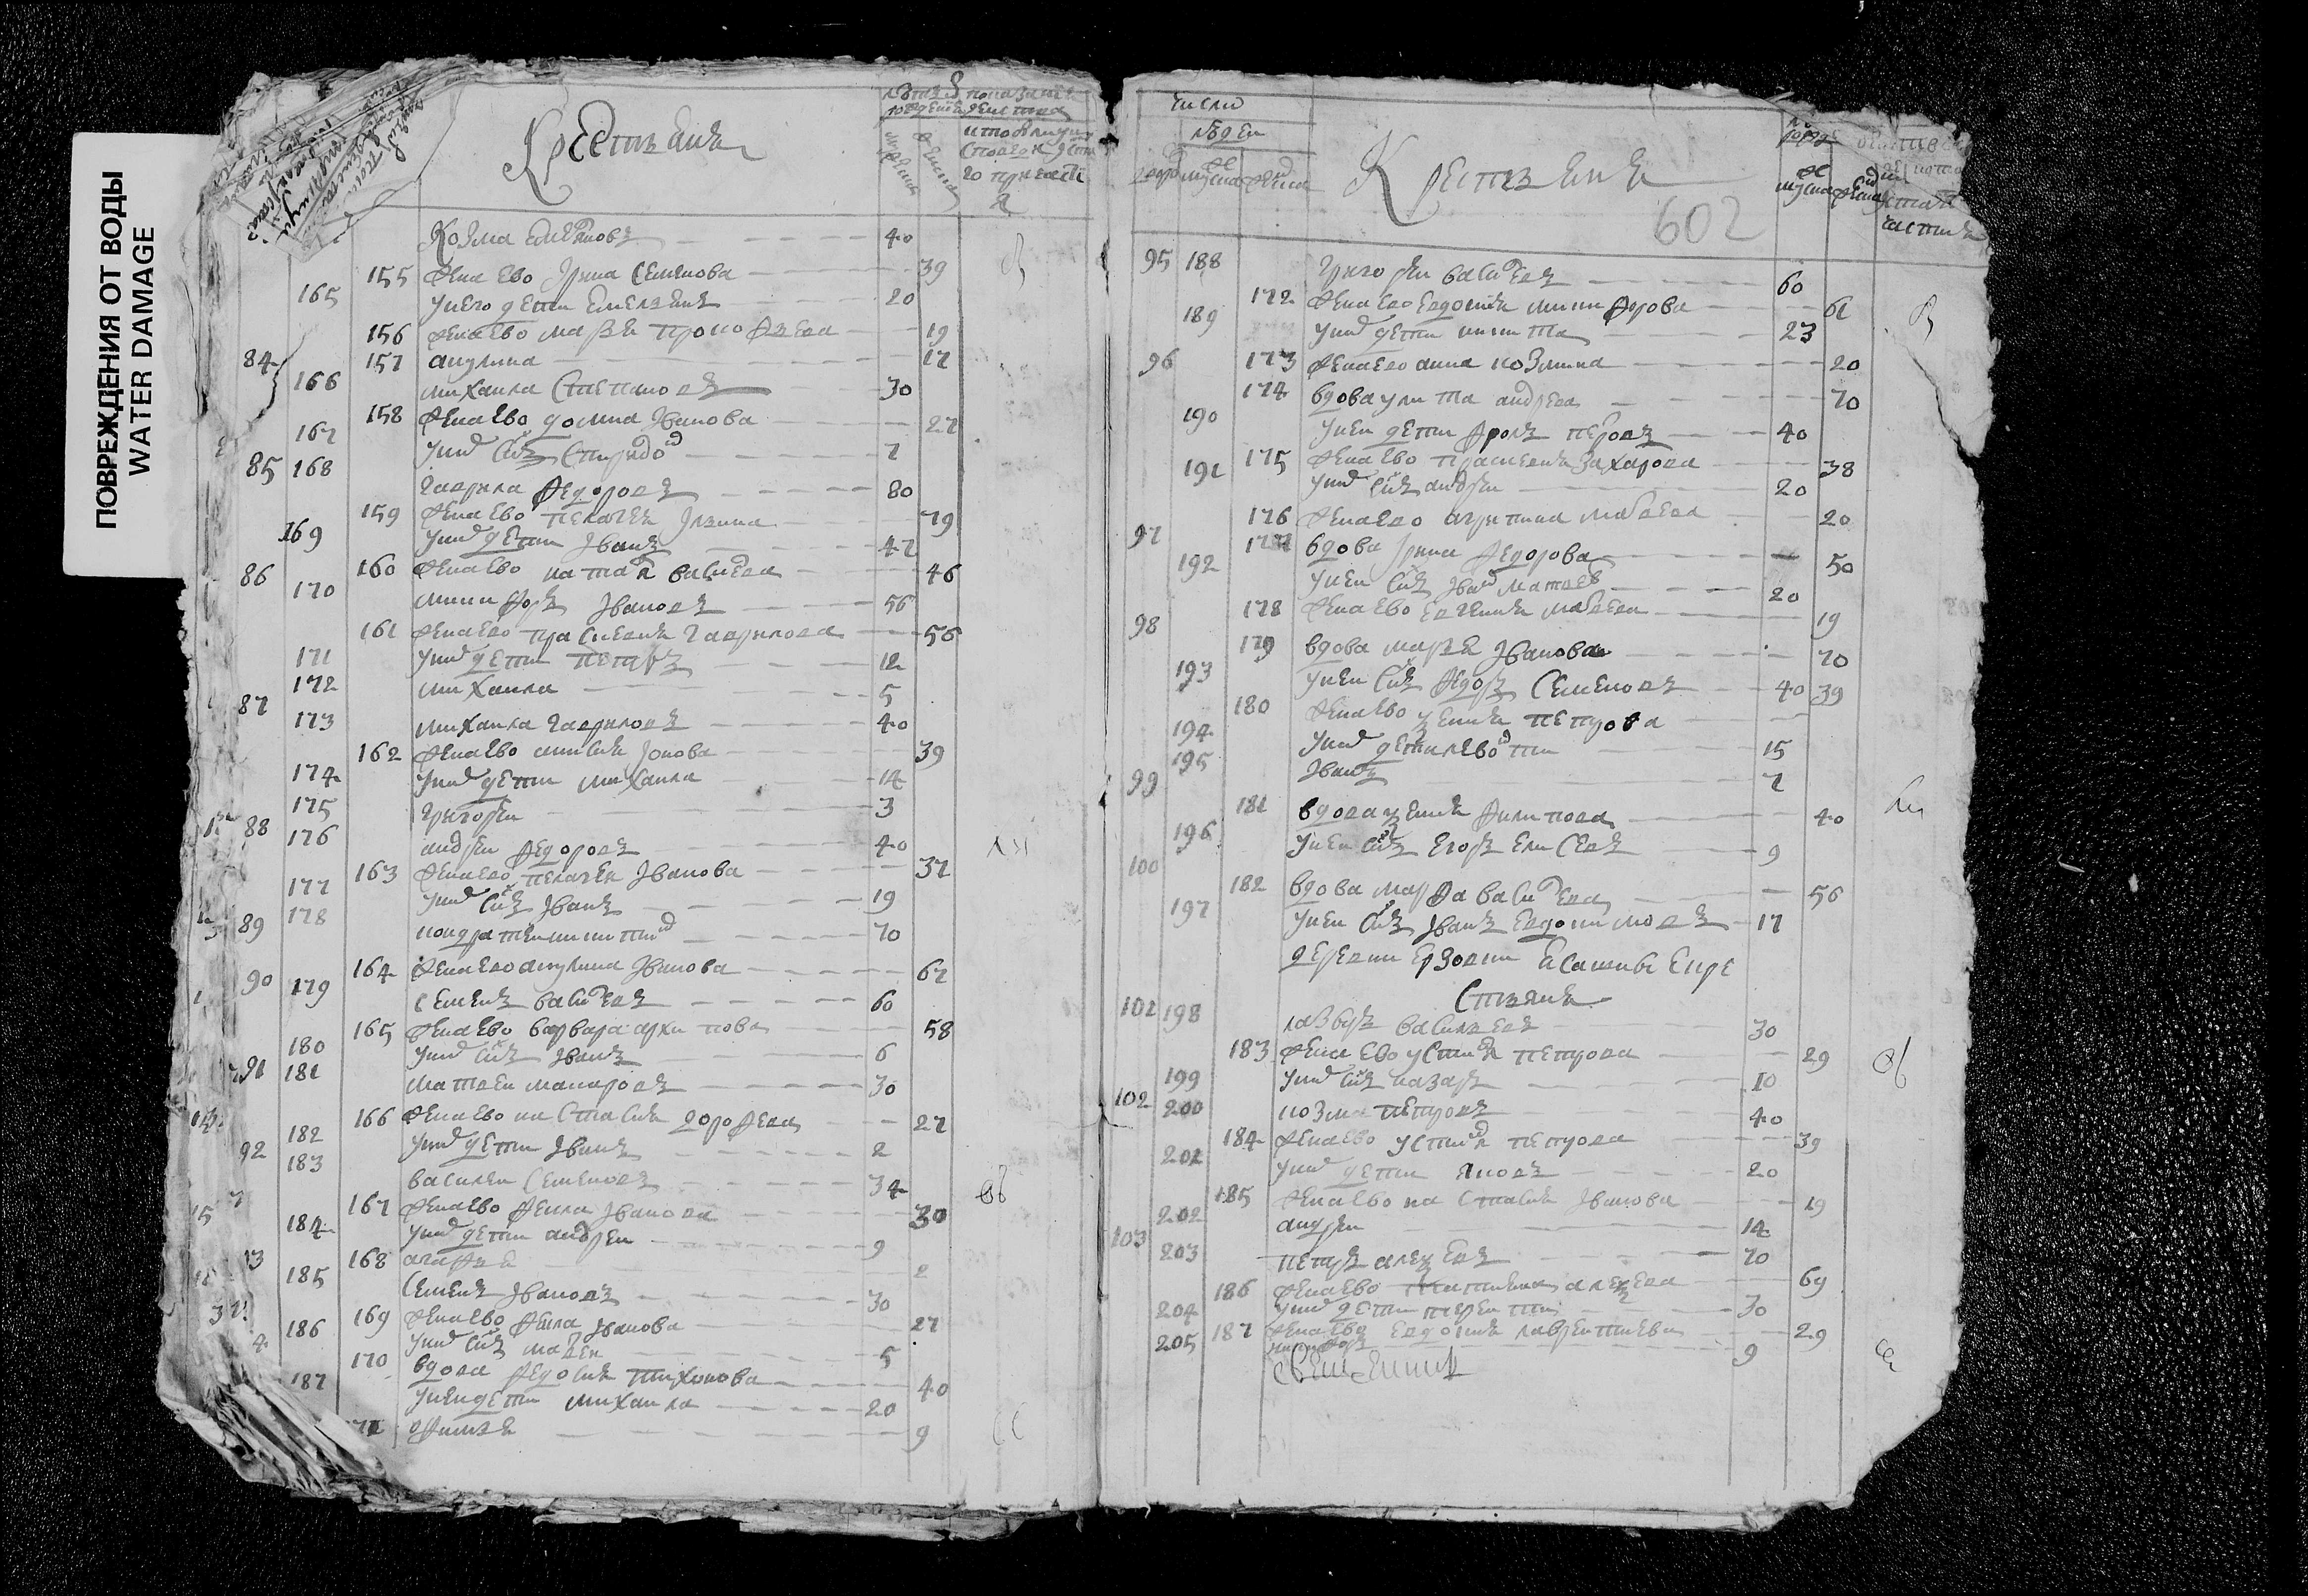 ПОВРЕЖДЕНИЯ ОТ ВОДЫ
WATER DAMAGE
Крестьяне
Козма Емельяновъ 40
155 жена Ево Ирина Семенова 39
165 у него дети Емельянъ 20
156 жена Ево Марья Прокофьева 19
157 акулина 17
84 166 михаила Степановъ 30
158 жена Ево домна Иванова 27
167 у них сынъ Спиридон 7
85 168 гаврила Федоровъ 80
159 жена Ево пелагея 79
169 у них дети Иванъ 47
160 жена Ево наталья васильева 46
86 170 никифоръ Ивановъ 56
161 жена Ево прасковья гаврилова 56
171 у них дети петръ 12
172 михаила 5
87 173 михаила гавриловъ 40
162 жена Ево Ионова 39
174 у них дети михаила 14
175 григорей 3
88 176 андрей федоровъ 40
163 жена Ево пелагея Иванова 37
177 у них сынъ Иванъ 19
89 178 кондратей никитин 70
164 жена Ево акулина Иванова 67
90 179 семенъ васильевъ 60
165 жена Ево варвара архипова 58
180 у них сынъ Иванъ 6
91 181 матвей макаровъ 30
166 жена Ево настасья дорофеева 27
182 у них дети Иванъ 2
92 183 василей Семеновъ 34
167 жена Ево фекла Иванова 30
184 у них дети андрей 9
168 агафья 2
185 Семенъ Ивановъ 30
169 жена Ево фекла Иванова 27
186 у них сынъ матвей 5
170 вдова федосья тихонова 40
187 у неи дети михаила 20
171 офимья 9
число
людей
Крестьяне
602
95 188 григорей васильевъ 60
172 жена Ево Евдокия никифорова 61
189 у них дети никита 23
96 173 жена Ево анна козмина 20
174 вдова улита андреева 70
190 у неи дети фролъ петровъ 40
175 жена Ево прасковья захарова 38
191 у них сынъ андрей 20
176 жена Ево агрипина матвеева 20
97 177 вдова Ирина федорова 50
192 у неи сынъ Иван матвеев 20
178 жена Ево Евгения матвеева 19
98 179 вдова марья Иванова 70
193 у неи сынъ федоръ Семеновъ 40 39
180 жена Ево ксения петрова
194 у них дети левонтий 15
195 Иванъ 7
99 181 вдова ксения филипова 40
196 у неи сынъ Егоръ Елисеевъ 9
100 182 вдова марфа васильева 56
197 у неи сынъ Иванъ Евдокимовъ 17
деревни Ерзовки
Стьяне
101 198 лазарь васильевъ 30
183 жена Ево устинья петрова 29
199 у них сынъ назаръ 10
102 200 козма петровъ 40
184 жена Ево устинья петрова 39
201 у них дети яковъ 20
185 жена Ево настасья Иванова 19
202 андрей 14
103 203 петръ алексеевъ 70
186 жена Ево татьяна алексеева 69
204 у них дети терентий 30
187 жена Ево Евдокия лаврентиева 29
205 никифоръ 9
Священник